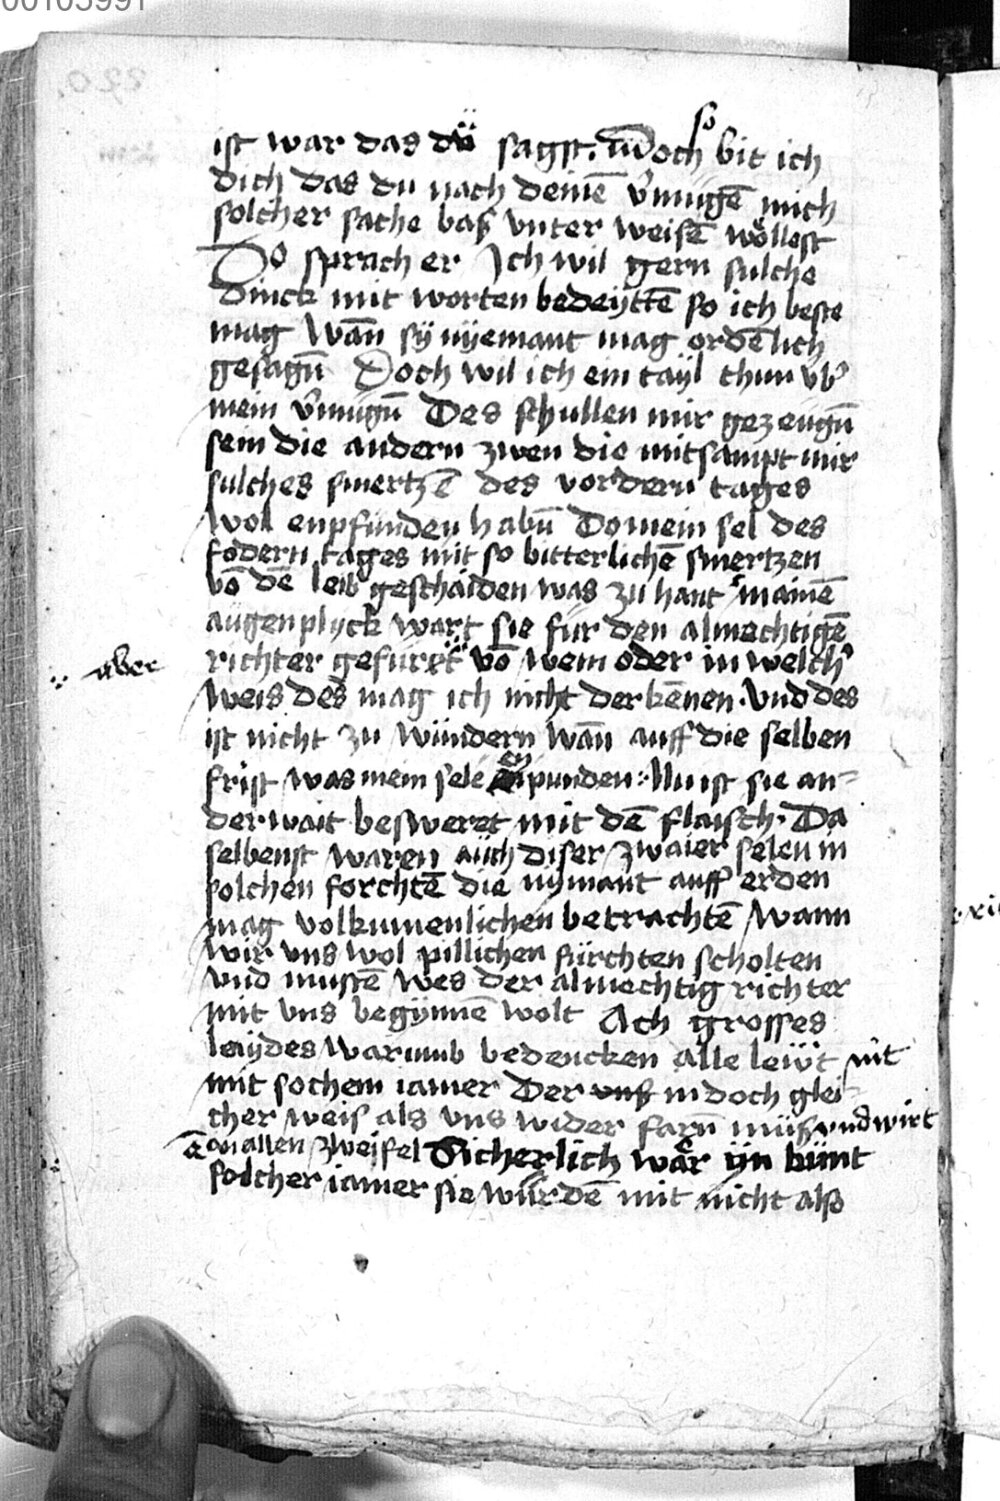 00103991
so
ist war das dü sagst. Woch bit ich
dich das du nach deinē v̾mugē mich
solcher sache baß vnter weisē wöllest
Do sprach er Ich wil gern sulche
dinck mit worten bedeÿttē so ich beste
mag Wan̄ sÿ nÿemant mag ordēlich
gesagn̄ Doch wil ich ein taÿl thun vb̾
mein v̾mugn̄ Des schullen mir gezeugn̄
sein die andern zwen die mitsampt mir
sulches smertzē des vordern tages
wol enpfunden habn̄ Do mein sel des
fodern tages mit so bitterlichē smertzen
vō dē leib geschaiden was zu hant mainē
augenplyck wart sie für den almechtigē
aber richter gefürt vō wem oder in welch̾
weis des mag ich nicht derkēnen. Vnd des
ist nicht zu wundern wan̄ auff die selben
frist was mein sele en punden: Nu ist sie an-
der wait besweret mit dē flaisch. Da
selbenst waren aüch diser zwaier selen in
solchen forchtē die nymant auff erden
mag volkumenlichen betrachtē Wann
wir vns wol pillichen fürchten scholten
vnd mustē wes der almechtig richter
mit vns begÿnnē wolt Ach grosses
laÿdes warumb bedencken alle lewt nit
mit sochem iamer Der vnß in doch glei-
cher weis als vns wider farn̄ müß vnd wirt
on allen zweifel Sicherlich wär ÿn künt
solcher iamer sie würdē mit nicht alß